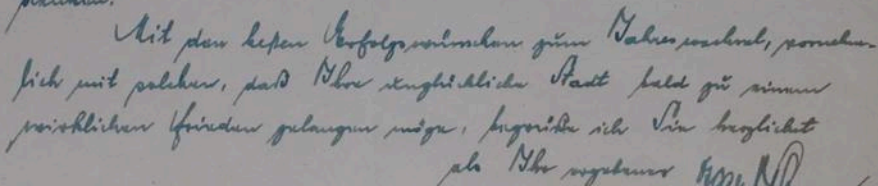 Mit den besten Erfolgswünschen zum Jahreswechsel, vornehm-
lich mit solchen, daß Ihre unglückliche Stadt bald zu einem
wirklichen Frieden gelangen möge, begrüße ich Sie herzlichst
als Ihr ergebener